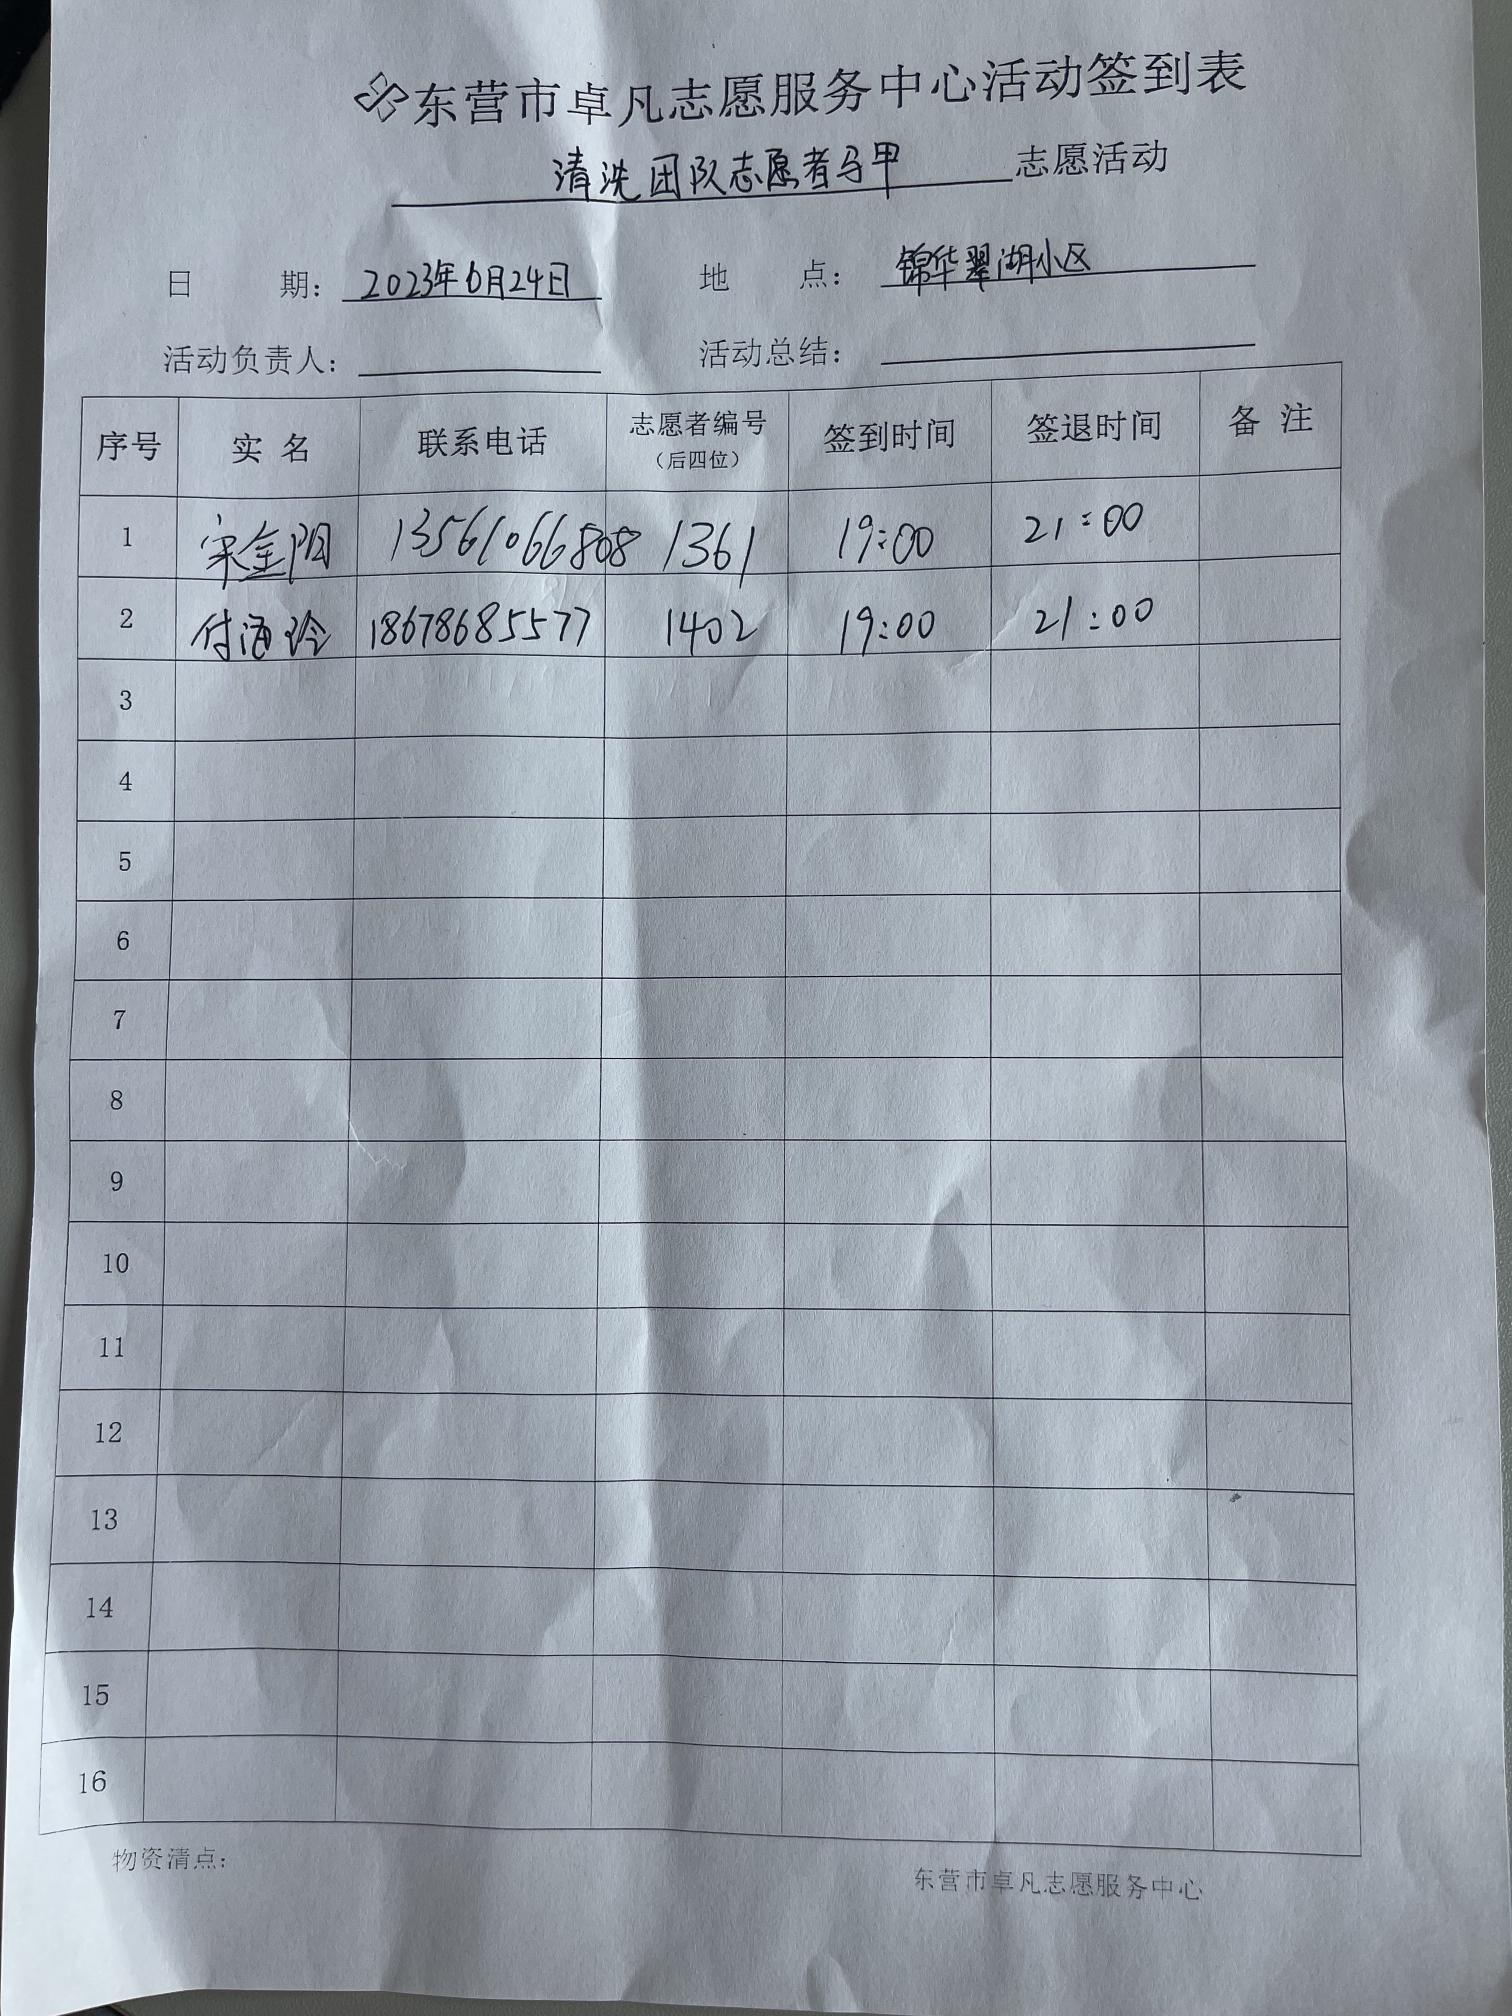 东营市卓凡志愿服务中心活动签到表
清洗团队志愿者马甲 志愿活动
日 期： 2023年6月24日 地 点： 锦华翠湖小区
活动负责人： 活动总结：
序号 实 名 联系电话 志愿者编号（后四位） 签到时间 签退时间 备 注
1 宋金阳 13561066808 1361 19:00 21:00
2 付海玲 18678685577 1402 19:00 21:00
3
4
5
6
7
8
9
10
11
12
13
14
15
16
物资清点： 东营市卓凡志愿服务中心